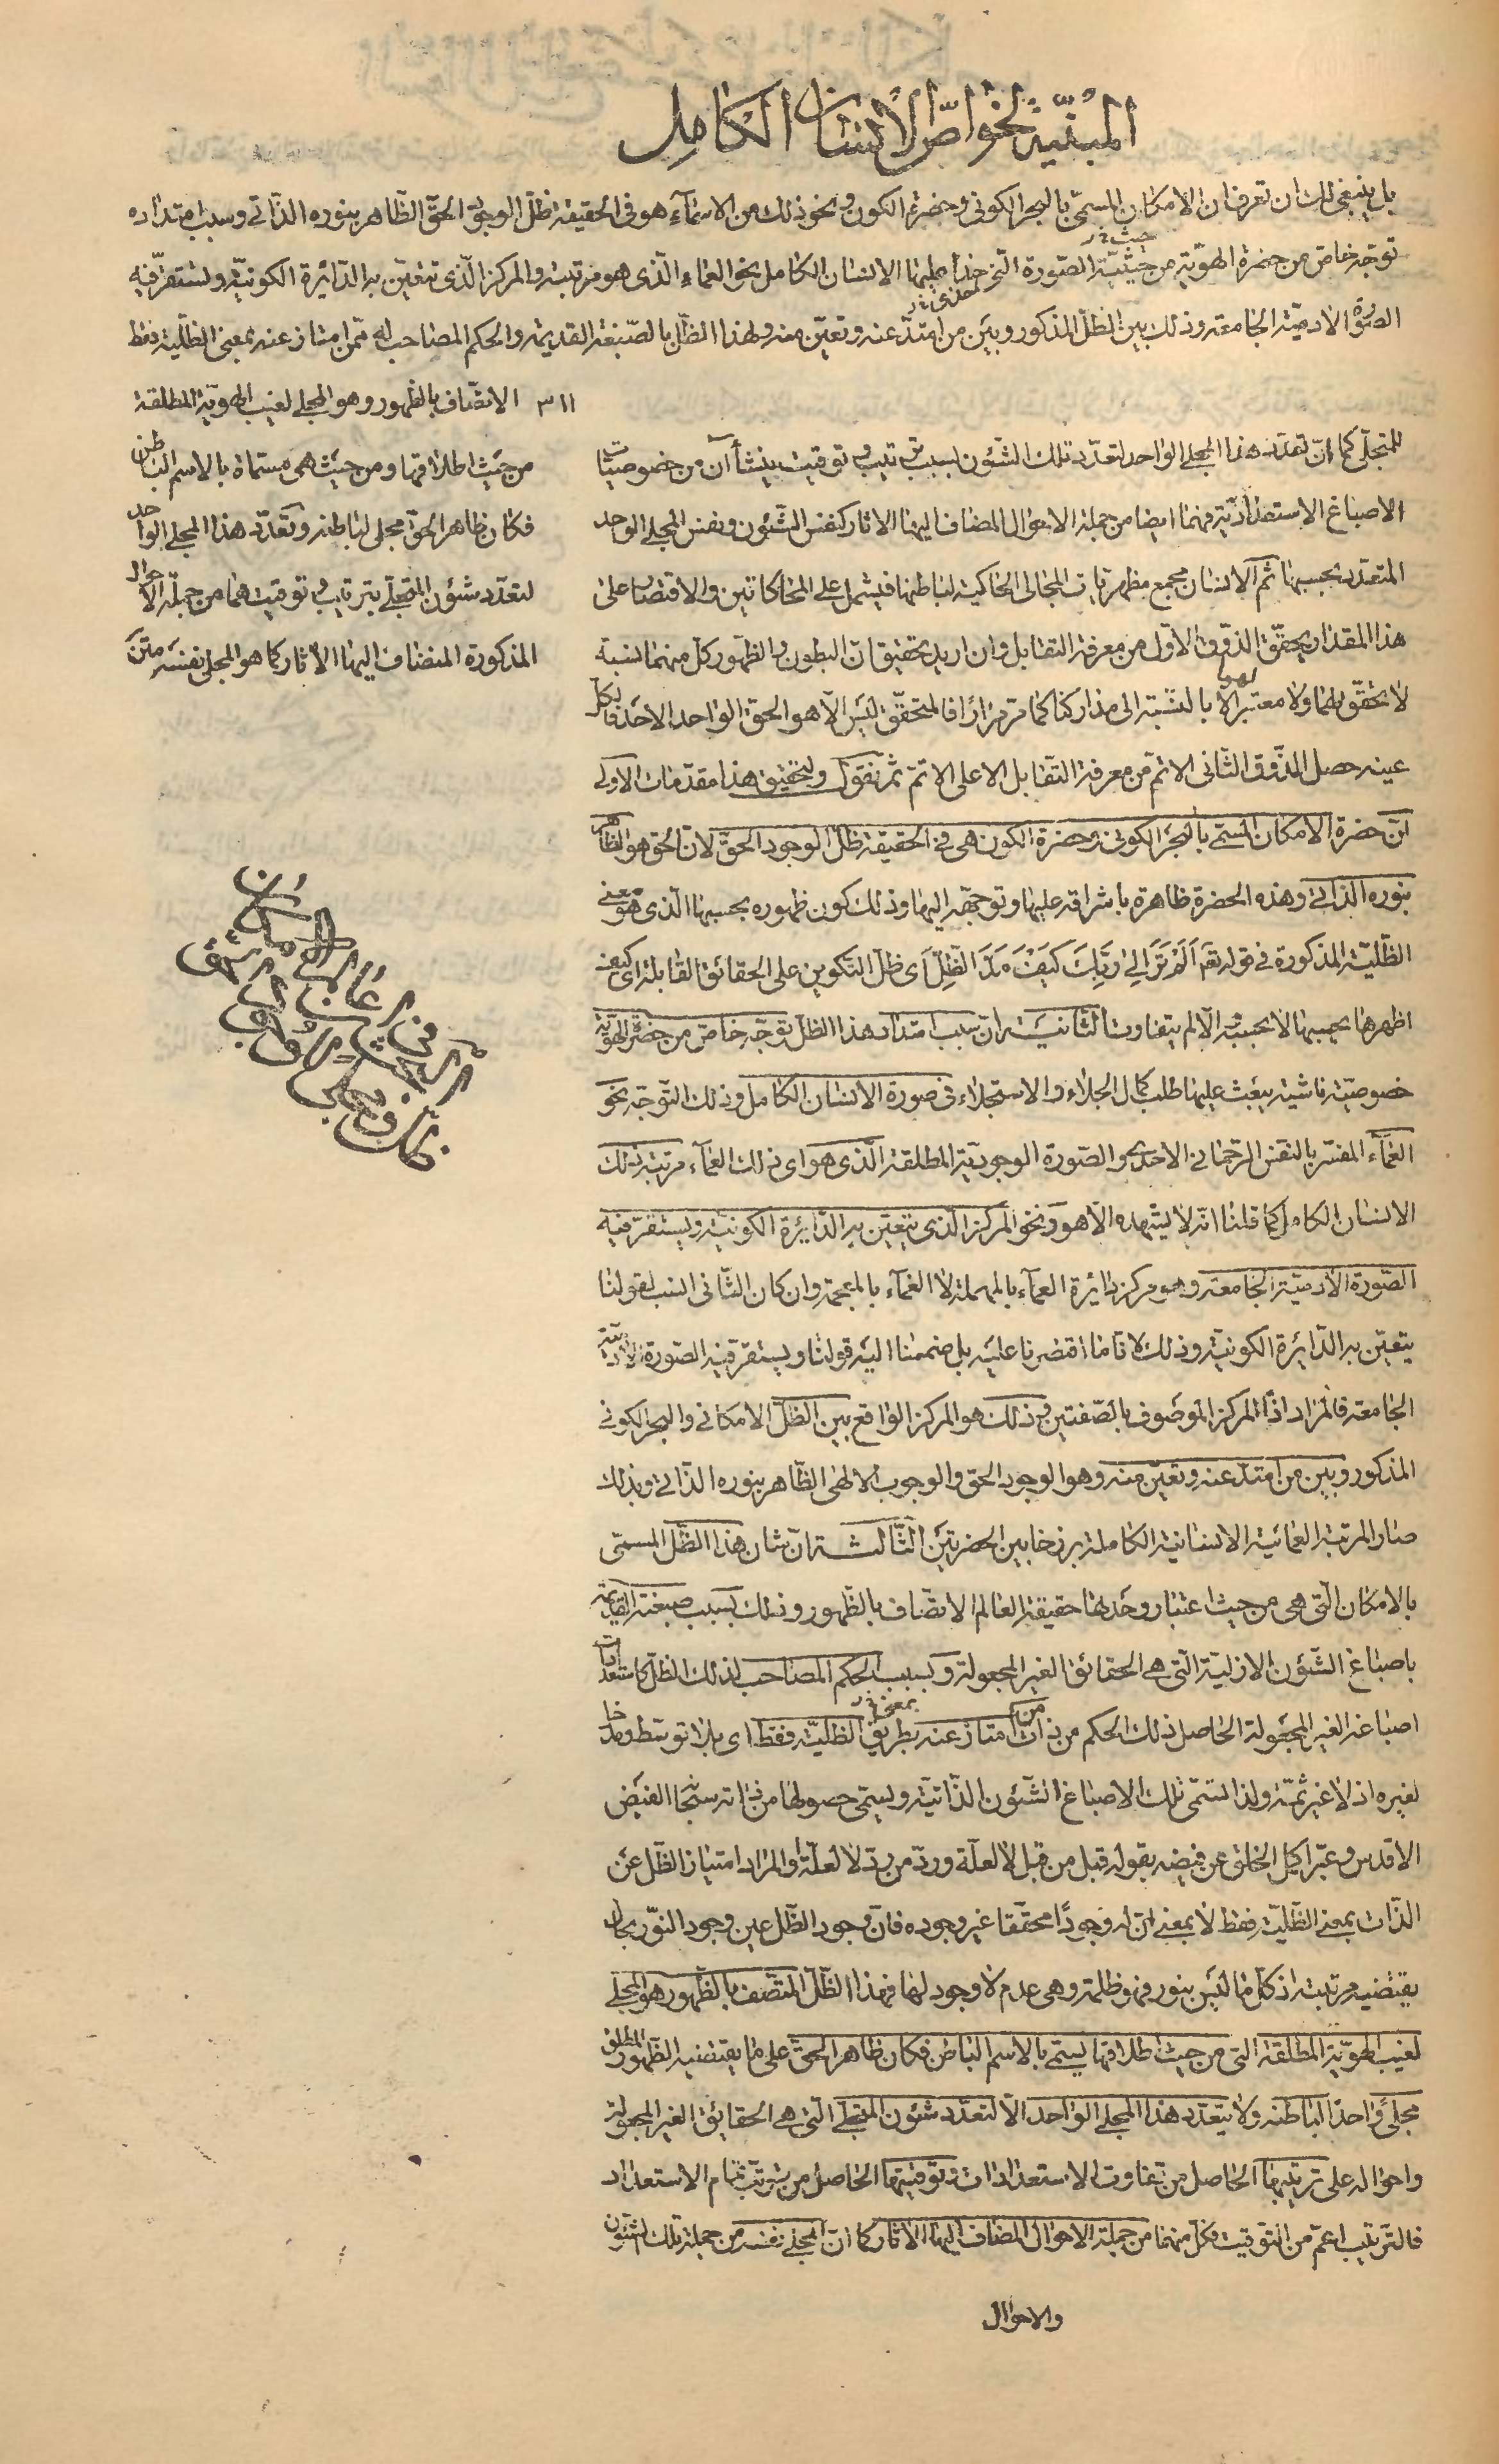 المبنية لخواص الانسان الكامل
بل ينبغى لك ان تعرف ان الامكان المسمى بالبحر الكونى وحضرة الكون ونحو ذلك من الاسماء هو فى الحقيقة ظل الوجود الحق الظاهر بنوره الذاتى وسبب امتداده
توجه خاص من حضرة الهوية من حيثية الصورة التى عليها الانسان الكامل نحو العماء الذى هو مرتبته والمركز الذى تتعين به الدائرة الكونية وتستقر فيه
الصورة الادمية الجامعة وذلك بين الظل المذكور وبين من امتد عنه وتعين منه ولهذا الظل بالصبغة القديمة والحكم المصاحب له ممن امتاز عنه بمعنى الظلية فقط
٣١١ الاتصاف بالظهور وهو المجلى لغيب الهوية المطلقة
من حيث اطلاقها ومن حيث هى مسماة بالاسم الباطن
فكان ظاهر الحق مجلى لباطنه وتعدد هذا المجلى الواحد
لتعدد شئون المتجلى بترتيب وتوقيت هما من جملة الاحوال
المذكورة المضاف اليها الاثار كما هو المجلى نفسه
للمتجلى كما ان تعدد هذا المجلى الواحد لتعدد تلك الشئون بسبب ترتيب وتوقيت ينشأان من خصوصيات
الاصباغ الاستعدادية فهما ايضا من جملة الاحوال المضاف اليها الاثار كنفس الشئون ونفس المجلى الواحد
المتعدد بحسبها ثم الانسان مجمع مظهريات المجالى الحاكية لباطنها فيشمل على المحاكاتين والاقتصار على
هذا المقدار يحقق الذوق الاول من معرفة التقابل وان اريد تحقيق ان البطون والظهور كل منهما نسبة
لا تحقق لهما ولا معتبر الا بالنسبة الى مداركنا كما مر مرارا فالمتحقق ليس الا هو الحق الواحد الاحد
عينه حصل الذوق الثانى الاتم من معرفة التقابل الاعلى الاتم ثم نقول ولتحقيق هذا مقدمات الاولى
ان حضرة الامكان المسمى بالبحر الكونى وحضرة الكون هى فى الحقيقة ظل الوجود الحق لان الحق هو الظاهر
بنوره الذاتى وهذه الحضرة ظاهرة باشراقه عليها وتوجهه اليها وذلك كون ظهوره بحسبها الذى هو معنى
الظلية المذكورة فى قوله تعـ الم تر الى ربك كيف مد الظل اى ظل التكوين على الحقائق القابلة اى كيف
اظهرها بحسبها لا بحسبه والا لم يتفاوت الثانية ان سبب امتداد هذا الظل توجه خاص من حضرة الهوية
خصوصيته ناشية يبعث عليها طلب كمال الجلاء والاستجلاء فى صورة الانسان الكامل وذلك التوجه نحو
العماء المفسر بالنفس الرحمانى الاحدى والصورة الوجودية المطلقة الذى هو اى ذلك العماء مرتبة ذلك
الانسان الكامل كما قلنا انه لا يشهده الا هو ونحو المركز الذى يتعين به الدائرة الكونية ويستقر فيه
الصورة الادمية الجامعة وهو مركز دائرة العماء بالمهملة لا الغماء بالمعجمة وان كان الثانى انسب لقولنا
يتعين به الدائرة الكونية وذلك لانا ما اقتصرنا عليه بل ضممنا اليه قولنا ويستقر فيه الصورة الادمية
الجامعة فالمراد اذا المركز الموصوف بالصفتين وذلك هو المركز الواقع بين الظل الامكانى والبحر الكونى
المذكور وبين من امتد عنه وتعين منه وهو الوجود الحق والوجوب الالهى الظاهر بنوره الذاتى وبذلك
صار المرتبة العمائية الانسانية الكاملة برزخا بين الحضرتين الثالثة ان شان هذا الظل المسمى
بالامكان التى هى من حيث اعتبار وحدتها حقيقة العالم الاتصاف بالظهور وذلك بسبب صبغته القديمة
باصباغ الشئون الازلية التى هى الحقائق الغير المجعولة وبسبب الحكم المصاحب لذلك الظل كاستعدادات
اصباغه الغير المجعولة الحاصل ذلك الحكم من ذات من امتاز عنه بطريق الظلية فقط اى بلا توسط
لغيره اذ لا غير ثمة ولذا تسمى تلك الاصباغ الشئون الذاتية ويسمى حصولها من ذاته سنخا الفيض
الاقدس وعبر اكمل الخلق عن فيضه بقوله قبل من قبل لا لعلة ورد من رد لا لعلة والمراد امتياز الظل عن
الذات بمعنى الظلية فقط لا بمعنى ان له وجودا محققا غير وجوده فان وجود الظل عين وجود النور
يقتضيه مرتبته اذ كل ما ليس بنور فهو ظلمة وهى عدم لا وجود لها فهذا الظل المتصف بالظهور هو المجلى
لغيب الهوية المطلقة التى من حيث اطلاقها يسمى بالاسم الباطن فكان ظاهر الحق على ما يقتضيه الظهور المطلق
مجلى واحدا لباطنه ولا يتعدد هذا المجلى الواحد الا لتعدد شئون المتجلى التى هى الحقائق الغير المجعولة
واحواله على ترتيبها الحاصل من تفاوت الاستعدادات وتوقيتها الحاصل من ترتب تمام الاستعداد
فالترتيب اعم من التوقيت فكل منهما من جملة الاحوال المضاف اليها الاثار كما ان المجلى نفسه من جملة تلك الشئون
والاحوال